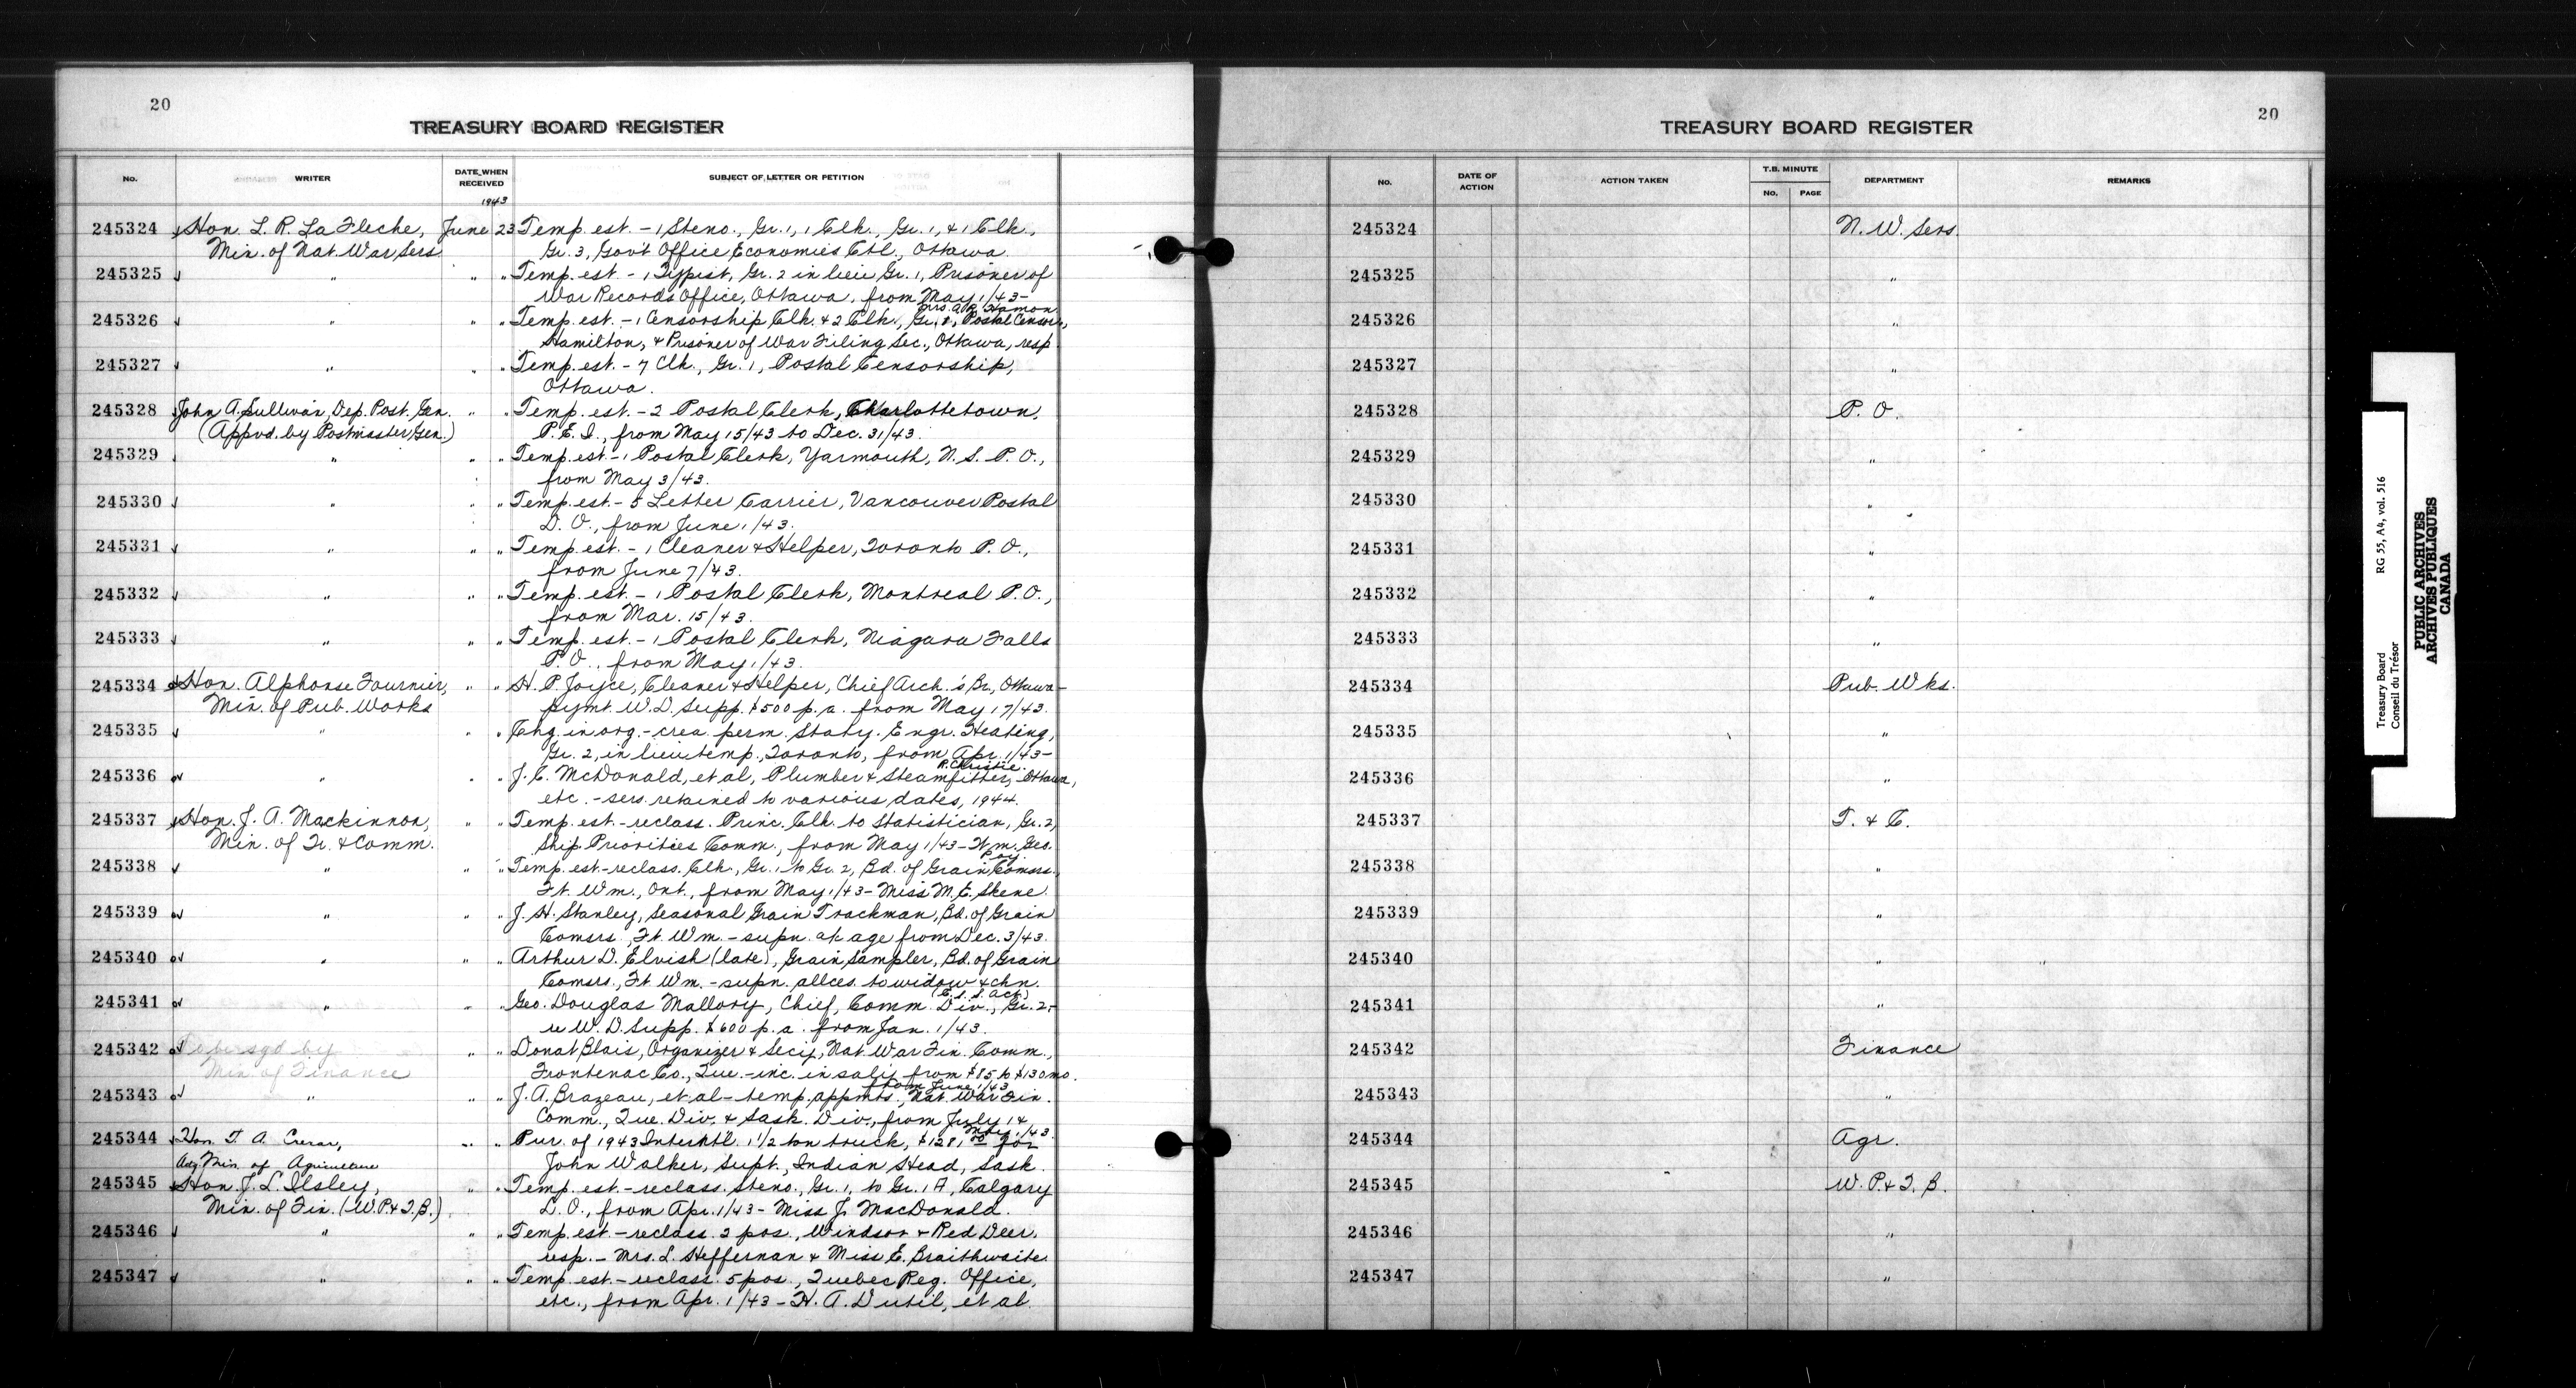 20
TREASURY BOARD REGISTER
No. WRITER DATE WHEN RECEIVED SUBJECT OF LETTER OR PETITION
1943
245324 Hon. L. R. La Fleche, June 23 Temp. est. - 1 Steno., Gr. 1, 1 Clk., Gr. 1, & 1 Clk.,
Min. of Nat. War Sers. Gr. 3, Gov't Office Economies Ctl., Ottawa.
245325 " " " Temp. est. - 1 Typist, Gr. 2 in lieu Gr. 1, Prisoner of
War Records Office, Ottawa, from May 1/43 -
Mrs. A. R. Hamon
245326 " " " Temp. est. - 1 Censorship Clk. & 2 Clk., Gr. 1, Postal Censor,
Hamilton, & Prisoner of War Filing Sec., Ottawa, resp.
245327 " " " Temp. est. - 7 Clk., Gr. 1, Postal Censorship,
Ottawa.
245328 John A. Sullivan, Dep. Post. Gen. " " Temp. est. - 2 Postal Clerk, Charlottetown,
(Appvd. by Postmaster Gen.) P.E.I., from May 15/43 to Dec. 31/43.
245329 " " " Temp. est. - 1 Postal Clerk, Yarmouth, N.S. P.O.,
from May 3/43.
245330 " " " Temp. est. - 5 Letter Carrier, Vancouver Postal
D.O., from June 1/43.
245331 " " " Temp. est. - 1 Cleaner & Helper, Toronto P.O.,
from June 7/43.
245332 " " " Temp. est. - 1 Postal Clerk, Montreal P.O.,
from Mar. 15/43.
245333 " " " Temp. est. - 1 Postal Clerk, Niagara Falls
P.O., from May 1/43.
245334 Hon. Alphonse Fournier, " " H. P. Joyce, Cleaner & Helper, Chief Arch.'s Br., Ottawa -
Min. of Pub. Works pymt. W.D. Supp. $500 p.a. from May 17/43.
245335 " " " Chg. in org. - crea. perm. Staty. Engr. Heating,
Gr. 2, in lieu temp., Toronto, from Apr. 1/43 -
R. Christie.
245336 " " " J. C. McDonald, et al, Plumber & Steamfitter, Ottawa,
etc. - sers. retained to various dates, 1944.
245337 Hon. J. A. Mackinnon, " " Temp. est. - reclass. Princ. Clk. to Statistician, Gr. 2,
Min. of Tr. & Comm. Ship. Priorities Comm., from May 1/43 - Wm. Geo.
245338 " " " Temp. est. - reclass. Clk., Gr. 1 to Gr. 2, Bd. of Grain Comsrs.
Ft. Wm., Ont., from May 1/43 - Miss M. E. Skene.
245339 " " " J. H. Stanley, Seasonal Grain Trackman, Bd. of Grain
Comsrs., Ft. Wm. - supn. ak age from Dec. 3/43.
245340 " " " Arthur D. Elvish (late), Grain Sampler, Bd. of Grain
Comsrs., Ft. Wm. - supn. allces. to widow & chn.
(C.S.S. Act)
245341 " " " Geo. Douglas Mallory, Chief, Comm. Div., Gr. 2 -
re W.D. Supp. $600 p.a. from Jan. 1/43.
245342 Repersgd by " " Donat Blais, Organizer & Secy., Nat. War Fin. Comm.,
Min. of Finance Frontenac Co., Que. - inc. in saly. from $85 to $130 mo.
from June 1/43
245343 " " " J. A. Brazeau, et al - temp. appmts., Nat. War Fin.
Comm., Que. Div. & Sask. Div., from July 1 &
May 1/43.
245344 Hon. T. A. Crerar, " " Pur. of 1943 Interntl. 1 1/2 ton truck, for
Actg. Min. of Agriculture John Walker, Supt., Indian Head, Sask.
245345 Hon. J. L. Ilsley, " " Temp. est. - reclass. Steno., Gr. 1, to Gr. 1A, Calgary
Min. of Fin. (W.P.& T.B.) L.O., from Apr. 1/43 - Miss J. MacDonald.
245346 " " " Temp. est. - reclass. 2 pos., Windsor & Red Deer,
resp. - Mrs. L. Heffernan & Miss E. Braithwaite.
245347 " " " Temp. est. - reclass. 5 pos., Quebec Reg. Office,
etc., from Apr. 1/43 - H. A. Dutil, et al.
20
TREASURY BOARD REGISTER
No. DATE OF ACTION ACTION TAKEN T.B. MINUTE NO. PAGE DEPARTMENT REMARKS
245324 N. W. Sers.
245325 "
245326 "
245327 "
245328 P. O.
245329 "
245330 "
245331 "
245332 "
245333 "
245334 Pub. Wks.
245335 "
245336 "
245337 T. & C.
245338 "
245339 "
245340 "
245341 "
245342 Finance
245343 "
245344 Agr.
245345 W. P. & T. B.
245346 "
245347 "
Treasury Board RG 55, A4, vol. 516
Conseil du Trésor
PUBLIC ARCHIVES
ARCHIVES PUBLIQUES
CANADA